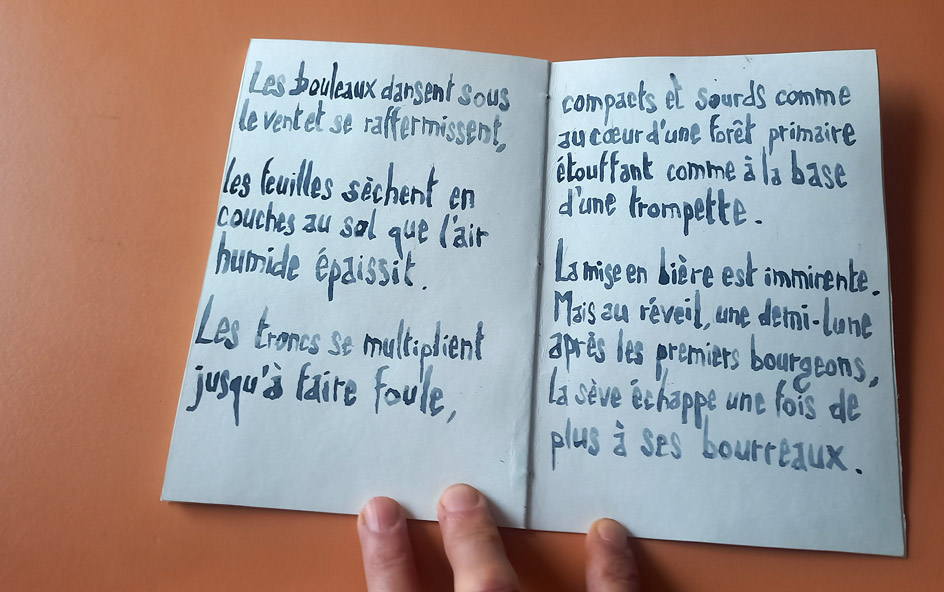 Les bouleaux dansent sous
le vent et se raffermissent,
les feuilles sèchent en
couches au sol que l'air
humide épaissit.
Les troncs se multiplient
jusqu'à faire foule,
compacts et sourds comme
au cœur d'une forêt primaire
étouffant comme à la base
d'une trompette.
La mise en bière est imminente.
Mais au réveil, une demi-lune
après les premiers bourgeons,
la sève échappe une fois de
plus à ses bourreaux.